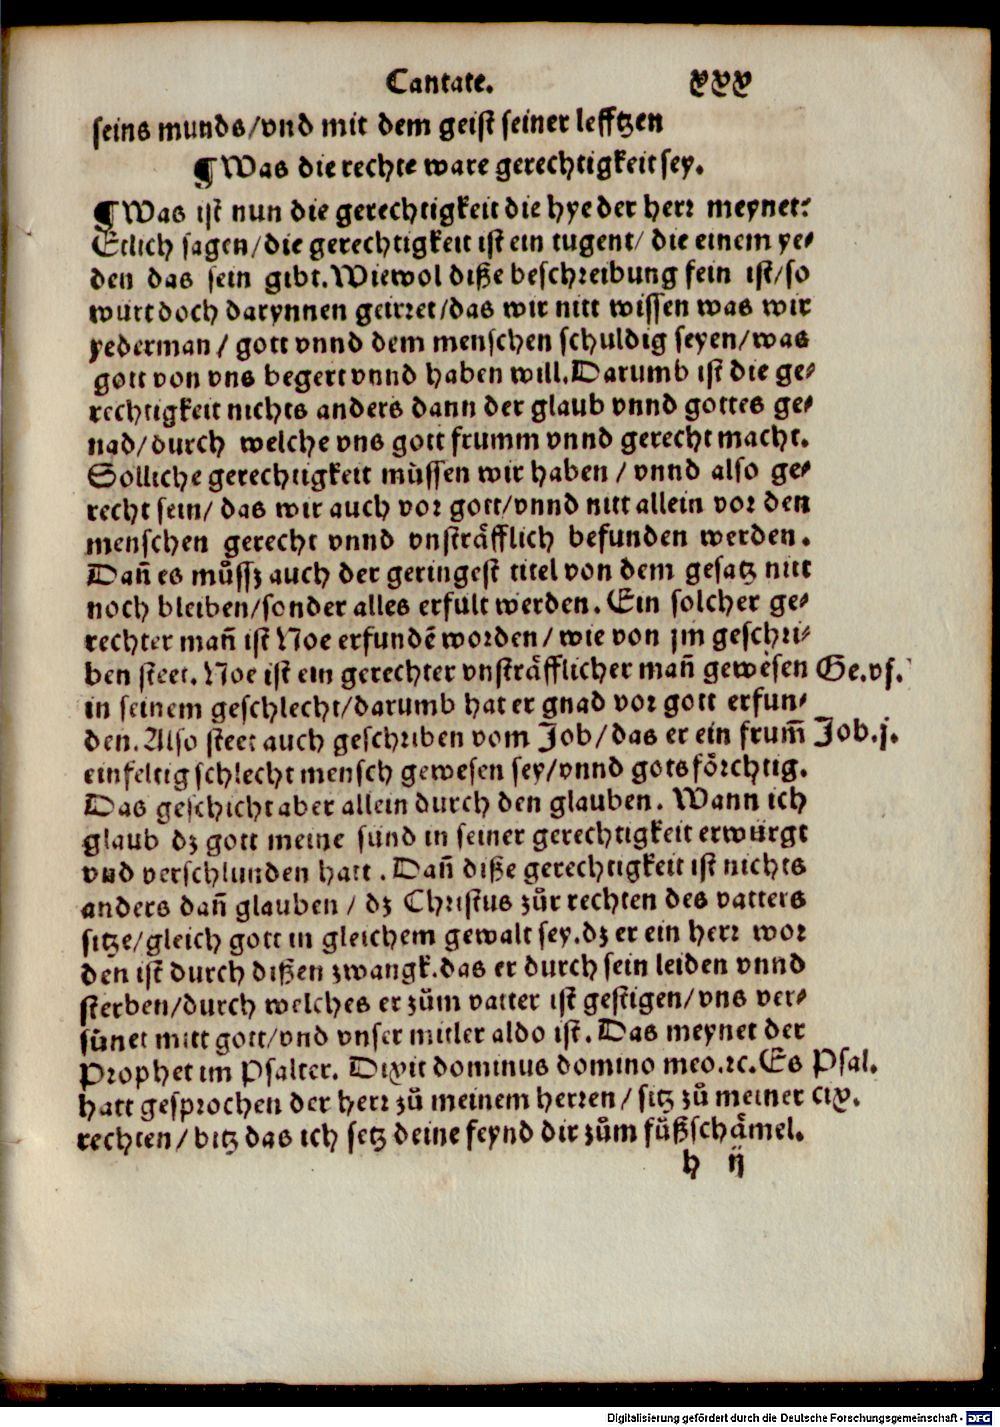 Cantate. xxx
seins munds/vnd mit dem geist seiner lefftzen
¶Was die rechte ware gerechtigkeit sey.
¶Was ist nun die gerechtigkeit die hye der herr meynet?
Etlich sagen/die gerechtigkeit ist ein tugent/ die einem ye⸗
den das sein gibt. Wiewol diße beschreibung fein ist/so
würt doch darynnen geirret/das wir nitt wissen was wir
yederman / gott vnnd dem menschen schuldig seyen/was
gott von vns begert vnnd haben will. Darumb ist die ge⸗
rechtigkeit nichts anders dann der glaub vnnd gottes ge⸗
nad/durch welche vns gott frumm vnnd gerecht macht.
Solliche gerechtigkeit müssen wir haben / vnnd also ge⸗
recht sein/ das wir auch vor gott/vnnd nitt allein vor den
menschen gerecht vnnd vnsträfflich befunden werden.
Dañ es můssz auch der geringest titel von dem gesatz nitt
noch bleiben/sonder alles erfült werden. Ein solcher ge⸗
rechter mañ ist Noe erfundē worden/ wie von jm geschri⸗
ben steet. Noe ist ein gerechter vnsträfflicher mañ gewesen Ge.vj.
in seinem geschlecht/darumb hat er gnad vor gott erfun⸗
den. Also steet auch geschriben vom Job/das er ein frum̄ Job.j.
einfeltig schlecht mensch gewesen sey/vnnd gotsförchtig.
Das geschicht aber allein durch den glauben. Wann ich
glaub dz gott meine sünd in seiner gerechtigkeit erwürgt
vnd verschlunden hatt. Dañ diße gerechtigkeit ist nichts
anders dañ glauben / dz Christus zůr rechten des vatters
sitze/gleich gott in gleichem gewalt sey.dz er ein herr wor
den ist durch dißen zwangk.das er durch sein leiden vnnd
sterben/durch welches er zům vatter ist gestigen/vns ver⸗
sünet mitt gott/vnd vnser mitler aldo ist. Das meynet der
Prophet im Psalter. Dixit dominus domino meo.ꝛc. Es Psal.
hatt gesprochen der herr zů meinem herren / sitz zů meiner cix.
rechten/ bitz das ich setz deine feynd dir zům fůßschämel.
h ij
Digitalisierung gefördert durch die Deutsche Forschungsgemeinschaft - DFG